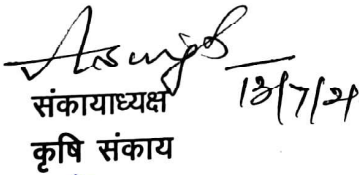 13/7/21
संकायाध्यक्ष
कृषि संकाय